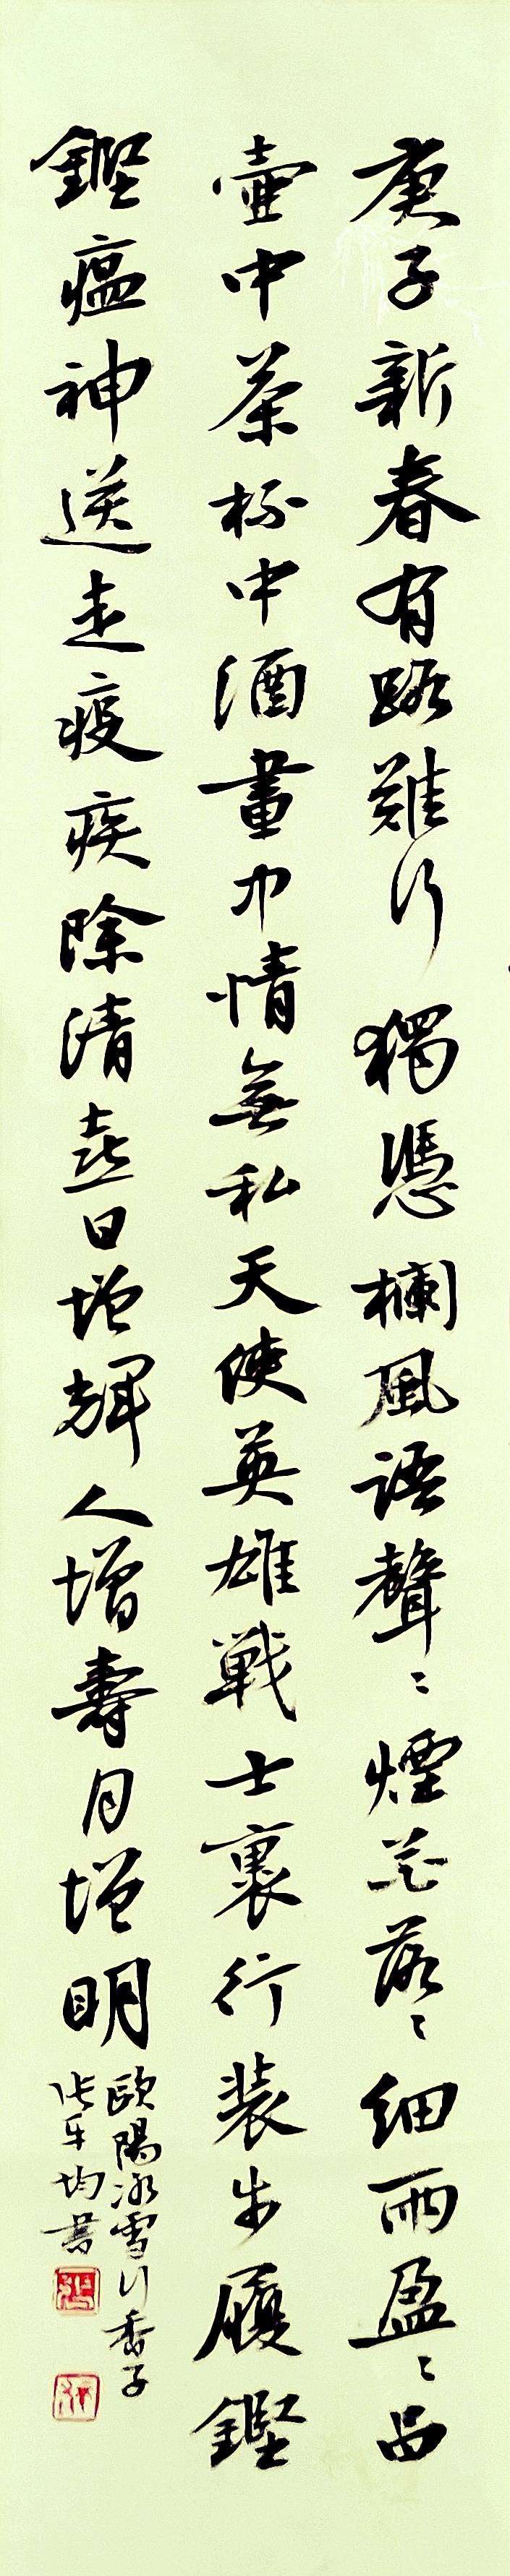 庚子新春有路難行獨憑欄風語聲〻煙花落〻細雨盈〻品
壺中茶杯中酒畫巾情無私天使英雄戰士裹行裝步履鏗
鏗瘟神送走疫疾除清喜日增輝人增壽月增明
歐陽冰雪行香子
張平均書